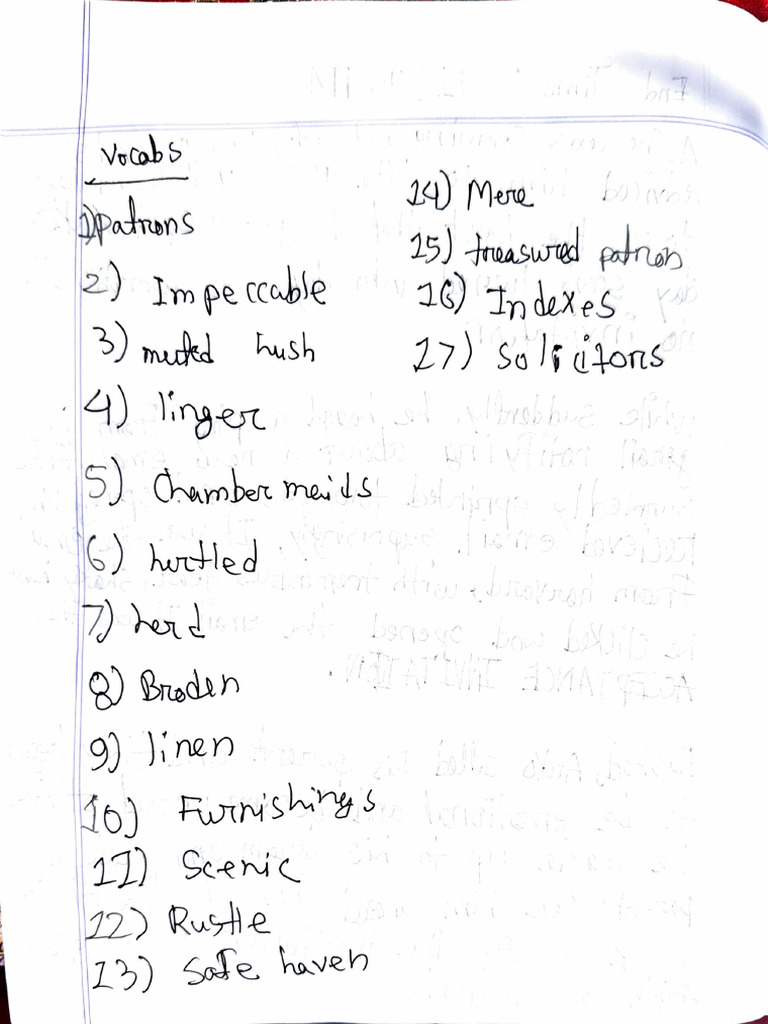 Vocabs
1) Patrons
2) Impeccable
3) muted hush
4) linger
5) Chamber maids
6) hurtled
7) herd
8) Broden
9) linen
10) Furnishings
11) Scenic
12) Rustle
13) Safe haven
14) Mere
15) treasured patron
16) Indexes
17) Solicitors